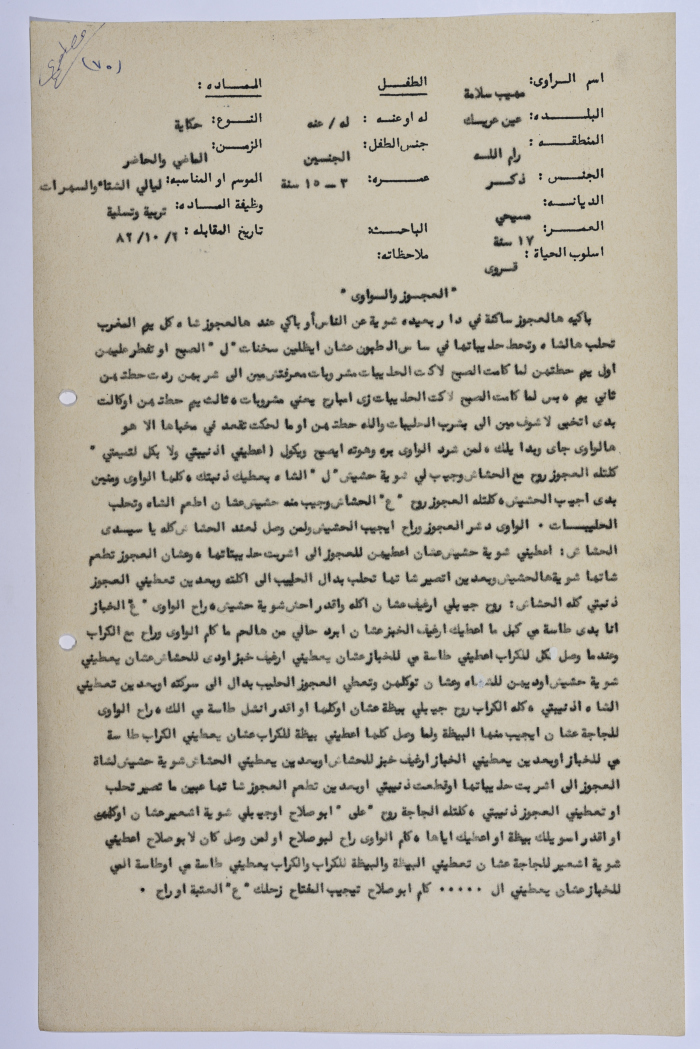 (٧٠)
اسم الراوى: مهيب سلامة
الطفل
المادة:
البلده: عين عريك
له او عنه: له / عنه
النوع: حكاية
المنطقه: رام الله
جنس الطفل: الجنسين
الزمن: الماضي والحاضر
الجنس: ذكر
عمره: ٣ - ١٥ سنة
الموسم او المناسبه: ليالي الشتاء والسهرات
الديانه: مسيحي
وظيفة الماده: تربية وتسلية
العمر: ١٧ سنة
الباحث:
تاريخ المقابله: ٢/ ١٠/ ٨٢
اسلوب الحياة: قروى
ملاحظاته:
" العجوز والواوى "
باكيه هالعجوز ساكنة في دار بعيده شوية عن الناس أو باكي عند هالعجوز شاه كل يم المغرب
تحلب هالشاه وتحط حليباتها في ساس الطبون عشان ايظلين سخنات "ل" الصبح او تفطر عليهن
اول يم حطتهن لما كامت الصبح لاكت الحليبات مشروبات معرفتش مين الى شربهن ردت حطتهن
ثاني يم ه بس لما كامت الصبح لاكت الحليبات زى امبارح يعني مشروبات ه ثالث يم حطتهن اوكالت
بدى اتخبى لاشوف مين الى بشرب الحليبات والله حطتهن او ما لحكت تقعد في مخباها الا هو
هالواوى جاى وبدا يلك ه لمن شرد الواوى بره وهوته ايصيح ويكول (اعطيني اذنيبتي ولا بكل لتسبعتي "
كلتله العجوز روح مع الحشاش وجيب لي شوية حشيش "ل" الشاه بعطيك ذنبتك ه كلها الواوى ومنين
بدى اجيب الحشيش ه كلتله العجوز روح "ع" الحشاش وجيب منه حشيش عشان اطعم الشاه وتحلب
الحليبات ٠ الواوى دشر العجوز وراح ايجيب الحشيش ولمن وصل لعند الحشاش كله يا سيدى
الحشاش: اعطيني شوية حشيش عشان اعطيهن للعجوز الى اشربت حليباتها ه وعشان العجوز تطعم
شاتها شوية هالحشيش وبعدين اتصير شاتها تحلب بدال الحليب الى اكلته وبعدين تعطيني العجوز
ذنبتي كله الحشاش: روح جيبلي ارغيف عشان اكله واقدر احش شوية حشيش ه راح الواوى "ع" الخباز
انا بدى طاسة مي كبل ما اعطيك ارغيف الخبز عشان ابرد حالي من هالحم ما كام الواوى وراح مع الكراب
وعندما وصل بكل للكراب اعطيني طاسة مي للخباز عشان يعطيني ارغيف خبز اودى للحشاش عشان يعطيني
شوية حشيش اوديهن للشاه وعشان توكلهن وتعطي العجوز الحليب بدال الى سركته اوبعدين تعطيني
الشاه اذنيبتي ه كله الكراب روح جيبلي بيظة عشان اوكلها او اقدر انشل طاسة مي الك ه راح الواوى
للجاجة عشان ايجيب منها البيظة ولما وصل كلها اعطيني بيظة للكراب عشان يعطيني الكراب طاسة
مي للخباز اوبعدين يعطيني الخباز ارغيف خبز للحشاش اوبعدين يعطيني الحشاش شوية حشيش لشاة
العجوز الى اشربت حليباتها اوقطعت ذنيبتي اوبعدين تطعم العجوز شاتها عبين ما تصير تحلب
او تعطيني العجوز ذنيبتي ه كلتله الجاجة روح "على" ابو صلاح اوجيبلي شوية اشعير عشان اوكلهن
او اقدر اسويلك بيظة او اعطيك اياها ه كام الواوى راح لبوصلاح او لمن وصل كان لابو صلاح اعطيني
شوية اشعير للجاجة عشان تعطيني البيظة والبيظة للكراب والكراب يعطيني طاسة مي اوطاسة المي
للخباز عشان يعطيني ال ٠٠٠٠٠ كام ابو صلاح تيجيب المفتاح زحلك "ع" العتبة او راح ٠